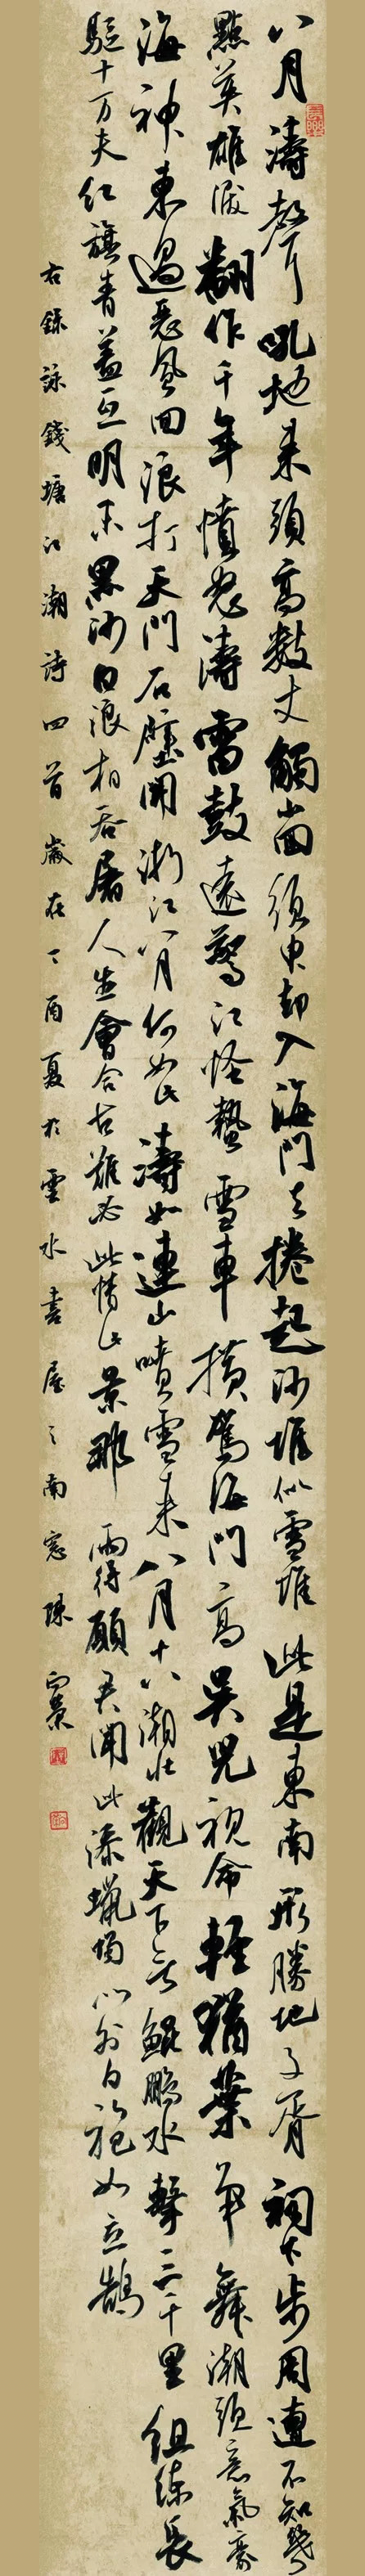 八月濤聲吼地来頭高數丈觸山回須臾却入海門去捲起沙堆似雪堆此是東南形勝地子胥祠下步周遭不知幾
點英雄淚翻作千年憤怒濤雷鼓遠驚江怪蟄雪車橫駕海門高吳兒視命輕猶葉爭舞潮頭意氣豪
海神東過惡風回浪打天門石壁開浙江八月何如此濤如連山噴雪来八月十八潮壯觀天下無鯤鵬水擊三千里組練長
驅十万夫红旗青蓋互明末黑沙白浪相吞屠人生會合古難必此情此景那兩得願君聞此添蠟燭門外白袍如立鵠
右錄詠錢塘江潮詩四首歲在丁酉夏於雲水書屋之南窓陳